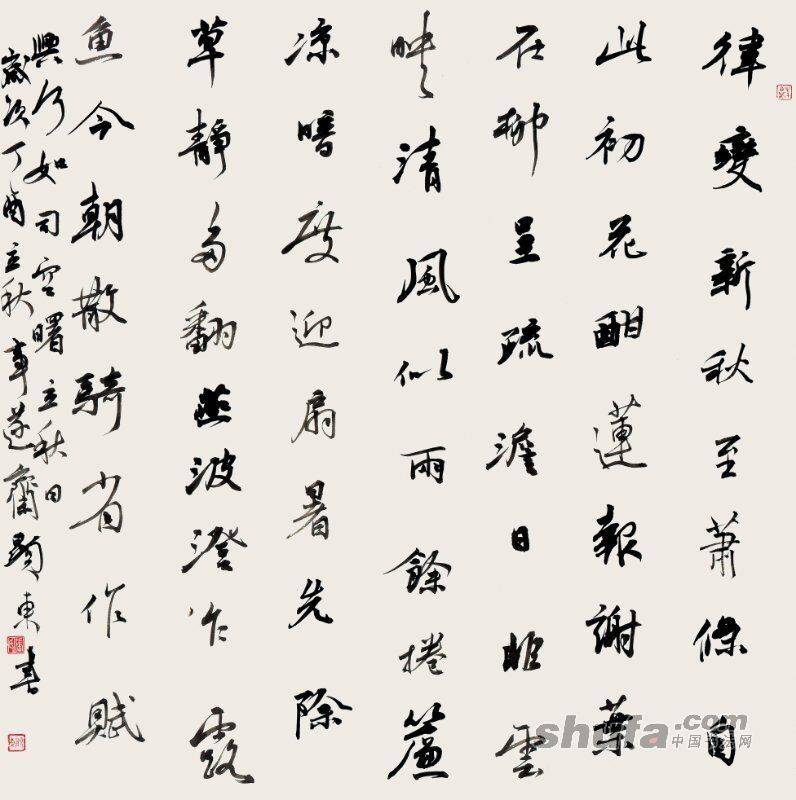 律變新秋至蕭條自
此初花酣蓮報謝葉
在柳呈疏澹日非雲
映清風似雨餘捲簾
凉暗度迎扇暑先除
草靜多翻燕波澄乍露
魚今朝散騎省作賦
興何如司空曙立秋日
歲次丁酉立秋事遂齋顯東書
shufa.com
中国书法网